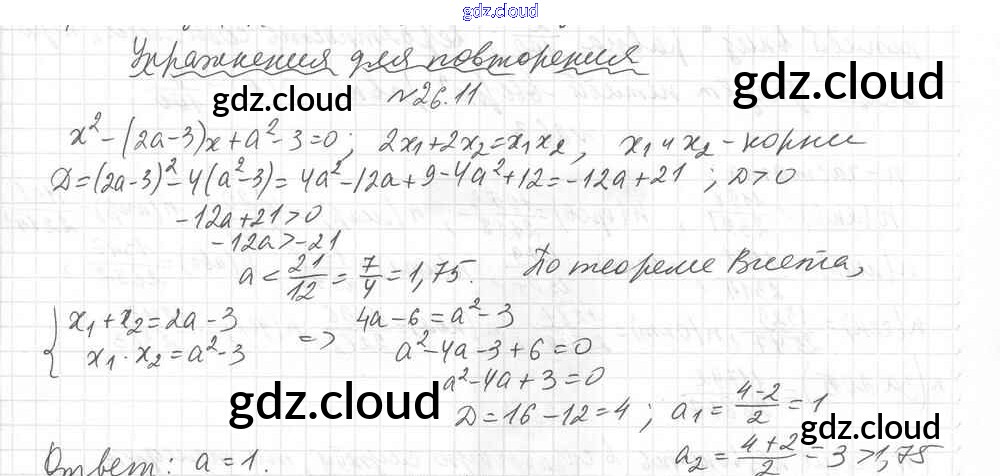 gdz.cloud
Упражнения для повторения
gdz.cloud
gdz.cloud
№26.11
x² - (2a-3)x + a² - 3 = 0; 2x₁+2x₂=x₁x₂; x₁ и x₂ - корни
Д=(2a-3)²-4(a²-3)=4a²-12a+9-4a²+12=-12a+21; Д>0
-12a+21>0
-12a>-21
a < 21/12 = 7/4 = 1,75. По теореме Виета,
{ x₁+x₂=2a-3
x₁·x₂=a²-3
=> 4a-6=a²-3
a²-4a-3+6=0
a²-4a+3=0
Д=16-12=4; a₁= (4-2)/2 =1
a₂= (4+2)/2 =3>1,75
gdz.cloud
gdz.cloud
Ответ: a=1.